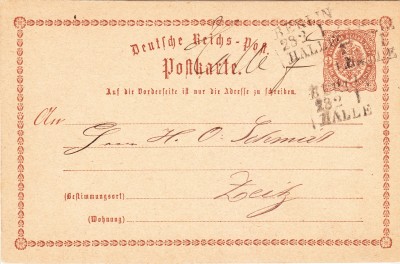 Deutsche Reichs-Post
BERLIN
23 2
HALLE
Postkarte.
Auf die Vorderseite ist nur die Adresse zu schreiben.
23 2
HALLE
An
Herrn H. O. Schmidt
Zeitz
(Bestimmungsort)
(Wohnung)